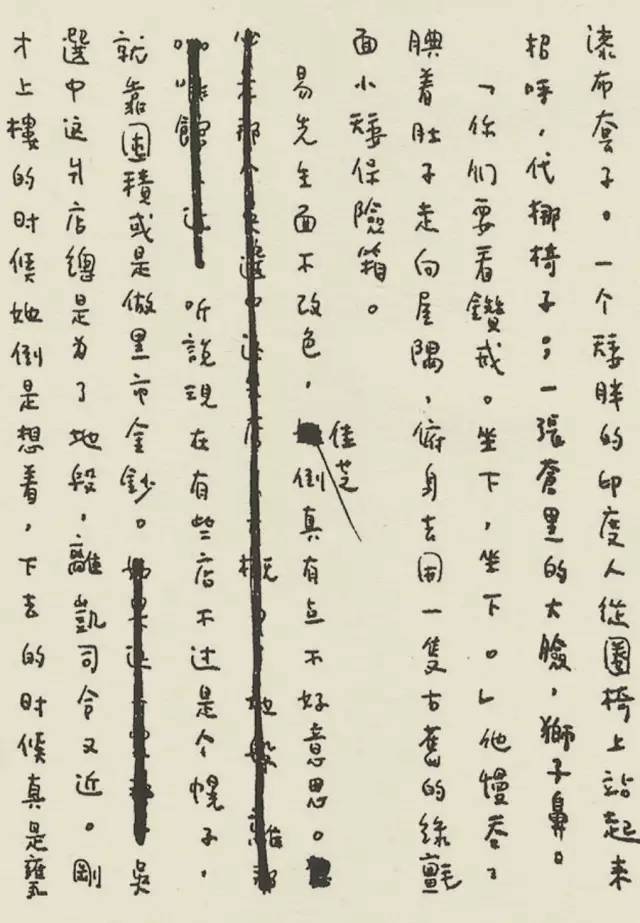 漆布套子。一个矮胖的印度人從圈椅上站起来
招呼，代挪椅子；一張蒼黑的大臉，獅子鼻。
「你们要看鑽戒。坐下，坐下。」他慢吞々
腆着肚子走向屋隅，俯身去開一隻古舊的綠氈
面小矮保險箱。
易先生面不改色，佳芝倒真有点不好意思。
听說現在有些店不过是个幌子，
就靠囤積或是做黑市金鈔。吳
選中这爿店總是为了地段，離凱司令又近。剛
才上樓的时候她倒是想着，下去的时候真是甕